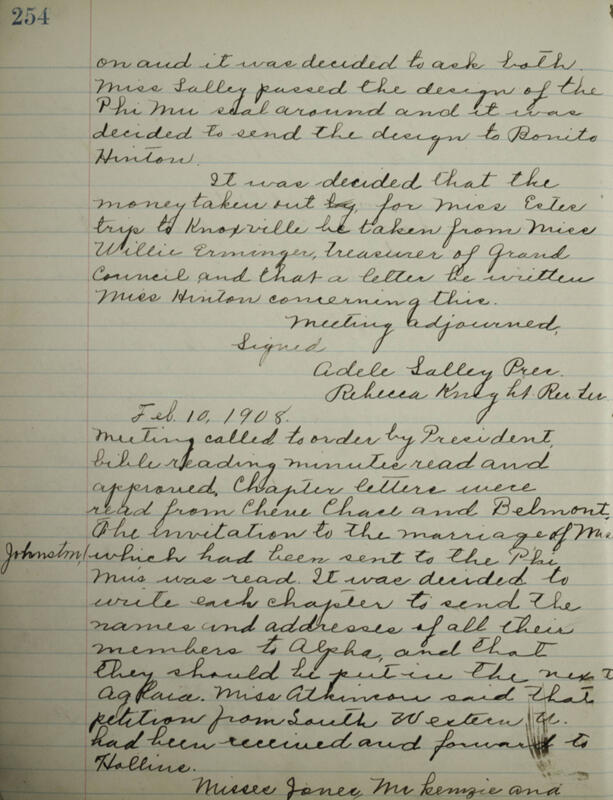 254
on and it was decided to ask both.
Miss Salley passed the design of the
Phi Mu seal around and it was
decided to send the design to Bonito
Hinton.
It was decided that the
money taken out for Miss Estes
trip to Knoxville be taken from Miss
Willie Erminger, treasurer of Grand
Council and that a letter be written
Miss Hinton concerning this.
Meeting adjourned,
Signed
Adele Salley Pres.
Rebecca Knight
Feb. 10, 1908.
Meeting called to order by President,
bible reading minutes read and
approved. Chapter letters were
read from Cheve Chace and Belmont.
The invitation to the marriage of Miss
Johnston, which had been sent to the Phi
Mus was read. It was decided to
write each chapter to send the
names and addresses of all their
members to Alpha, and that
they should be put in the next
Aglaia. Miss Atkinson said that
petition from South Western U.
had been received and forward to
Hollins.
Misses Jones, McKemzie and